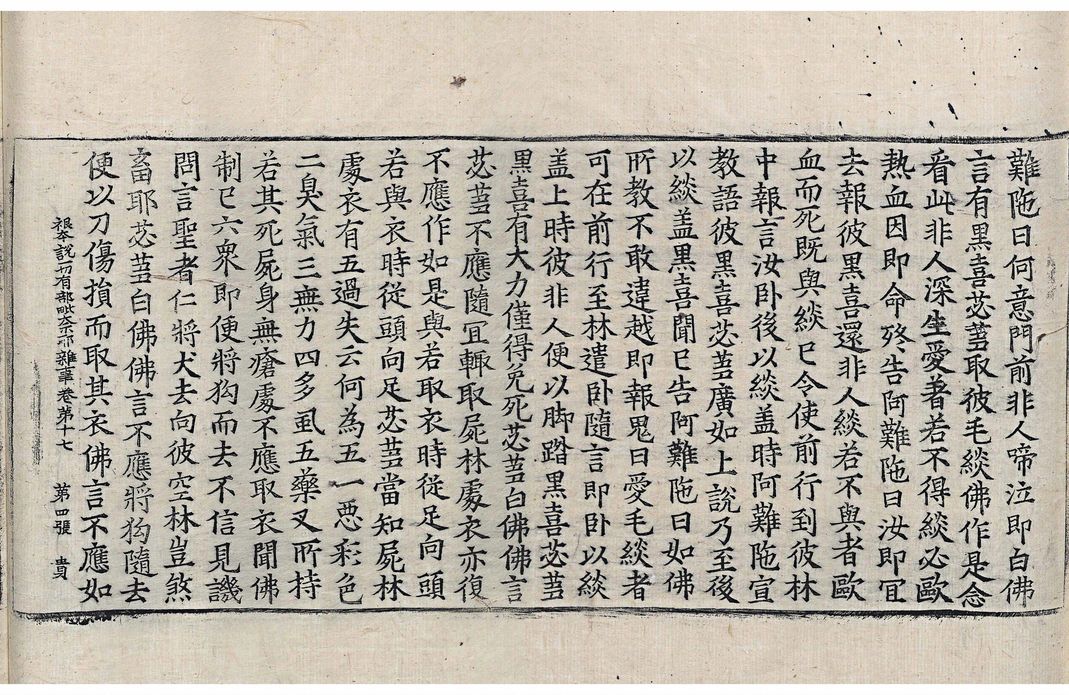 難陁曰何意門前非人啼泣即白佛
言有黑喜苾蒭取彼毛緂佛作是念
看此非人深生愛著若不得緂必歐
熱血因即命終告阿難陁曰汝即宜
去報彼黑喜還非人緂若不與者歐
血而死既與緂已令使前行到彼林
中報言汝卧後以緂盖時阿難陁宣
教語彼黑喜苾蒭廣如上說乃至後
以緂盖黑喜聞已告阿難陁曰如佛
所教不敢違越即報鬼曰愛毛緂者
可在前行至林遣卧隨言即卧以緂
盖上時彼非人便以脚踏黑喜苾蒭
黑喜有大力僅得免死苾蒭白佛佛言
苾蒭不應隨冝輙取屍林處衣亦復
不應作如是與若取衣時従足向頭
若與衣時従頭向足苾蒭當知屍林
處衣有五過失云何為五一惡彩色
二臭氣三無力四多虱五藥叉所持
若其死屍身無瘡處不應取衣聞佛
制已六衆即便將狗而去不信見譏
問言聖者仁將犬去向彼空林豈煞
畜耶苾蒭白佛佛言不應將狗隨去
便以刀傷損而取其衣佛言不應如
根本說一切有部毗奈耶雜事卷第十七 第四張 貴